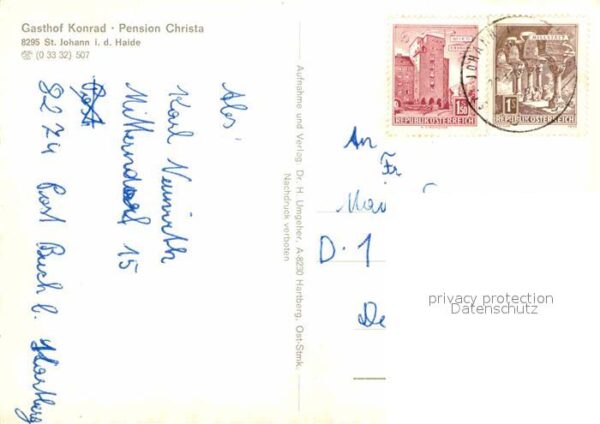 Gasthof Konrad · Pension Christa
8295 St. Johann i. d. Haide
☏ (0 33 32) 507
Abs.
Karl
Mitterndorf 15
Post
8274 Post Buch b. Hartberg
Aufnahme und Verlag: Dr. H. Umgeher, A-8230 Hartberg, Ost-Stmk.
Nachdruck verboten
WIEN
1.80
REPUBLIK ÖSTERREICH
MILLSTATT
1 S
REPUBLIK ÖSTERREICH
An
Fr
D-1
De
privacy protection
Datenschutz